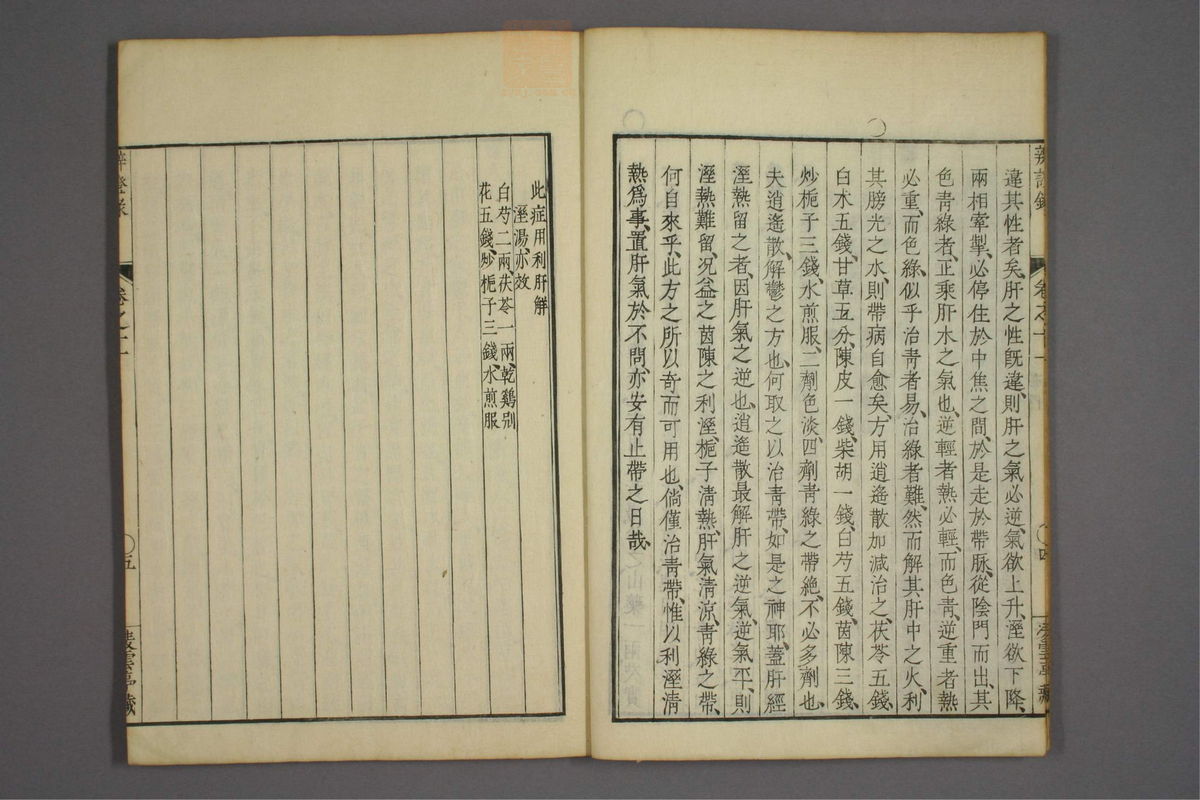 辨證錄
卷之十一
○四
違其性者矣、肝之性旣違、則肝之氣必逆、氣欲上升、溼欲下降、
兩相牽掣、必停住於中焦之間、於是走於帶脉、從陰門而出、其
色靑綠者、正乘肝木之氣也、逆輕者熱必輕、而色靑、逆重者熱
必重、而色綠、似乎治靑者易、治綠者難、然而解其肝中之火、利
其膀光之水、則帶病自愈矣、方用逍遙散加減治之、茯苓五錢、
白朮五錢、甘草五分、陳皮一錢、柴胡一錢、白芍五錢、茵陳三錢、
炒梔子三錢、水煎服、二劑色淡、四劑靑綠之帶絶、不必多劑也、
夫逍遙散、解鬱之方也、何取之以治靑帶、如是之神耶、蓋肝經
溼熱留之者、因肝氣之逆也、逍遙散最解肝之逆氣、逆氣平、則
溼熱難留、况益之茵陳之利溼、梔子淸熱、肝氣淸涼、靑綠之帶、
何自來乎、此方之所以奇而可用也、倘僅治靑帶、惟以利溼淸
熱爲事、置肝氣於不問、亦安有止帶之日哉、
此症用利肝解
溼湯、亦效
白芍二兩、茯苓一兩、乾鷄別
花五錢、炒梔子三錢、水煎服
○五